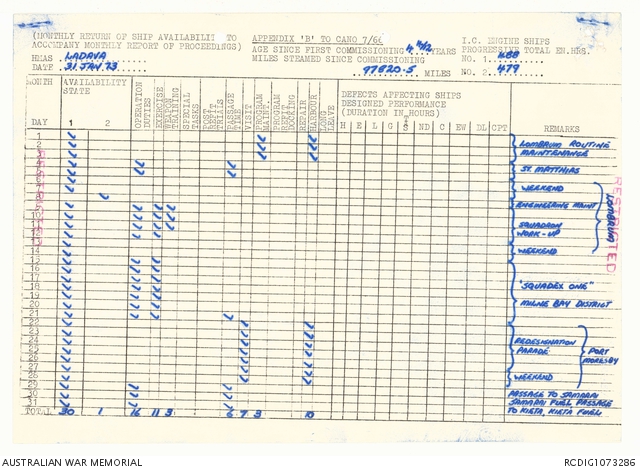 (MONTHLY RETURN OF SHIP AVAILABILITY TO
ACCOMPANY MONTHLY REPORT OF PROCEEDINGS)
HMAS LADAVA
DATE 31 JAN 73
APPENDIX 'B' TO CANO 7/66
AGE SINCE FIRST COMMISSIONING 4 4/12 YEARS
MILES STEAMED SINCE COMMISSIONING
97820.5 MILES
I.C. ENGINE SHIPS
PROGRESSIVE TOTAL EN.HRS.
NO. 1. 488
NO. 2. 479
MONTH
DAY
AVAILABILITY
STATE
1 2
OPERATION
DUTIES
EXERCISE
WEAPON
TRAINING
SPECIAL
TASKS
POST
REFIT
TRIALS
PASSAGE
TIME
VISIT
PROGRAM
MAINT.
PROGRAM
REFIT
DOCKING
REPAIR
HARBOUR
LONG
LEAVE
DEFECTS AFFECTING SHIPS
DESIGNED PERFORMANCE
(DURATION IN HOURS)
H E L A G S ND C EW DL CPT
REMARKS
1
2
3
4
5
6
7
8
9
10
11
12
13
14
15
16
17
18
19
20
21
22
23
24
25
26
27
28
29
30
31
LOMBRUM ROUTINE
MAINTENANCE
ST. MATTHIAS
WEEKEND
ENGINEERING MAINT
SQUADRON
WORK-UP
WEEKEND
LOMBRUM
"SQUADEX ONE"
MILNE BAY DISTRICT
REDESIGNATION
PARADE
WEEKEND
PORT
MORESBY
PASSAGE TO SAMARAI
SAMARAI FUEL PASSAGE
TO KIETA, KIETA FUEL
TOTAL 30 1 16 11 3 6 7 3 10
RESTRICTED
RESTRICTED
AUSTRALIAN WAR MEMORIAL
RCDIG1073286